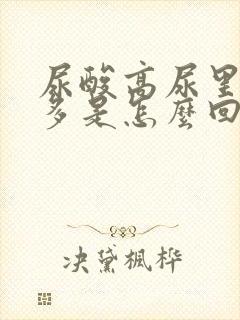 尿酸高尿里
多是怎麼回
决黛楓桦